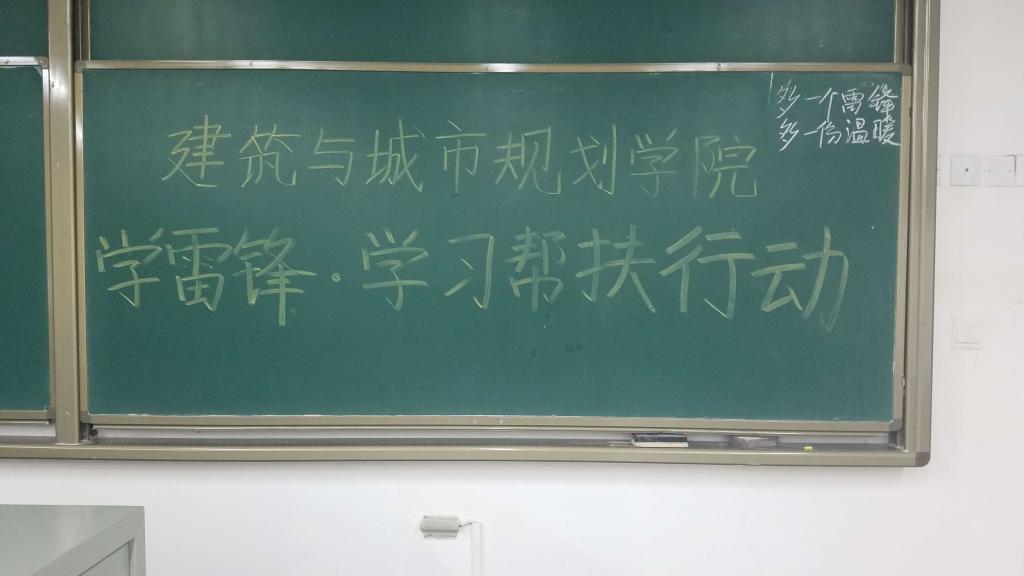 建筑与城市规划学院
学雷锋·学习帮扶行动
多一个雷锋
多一份温暖